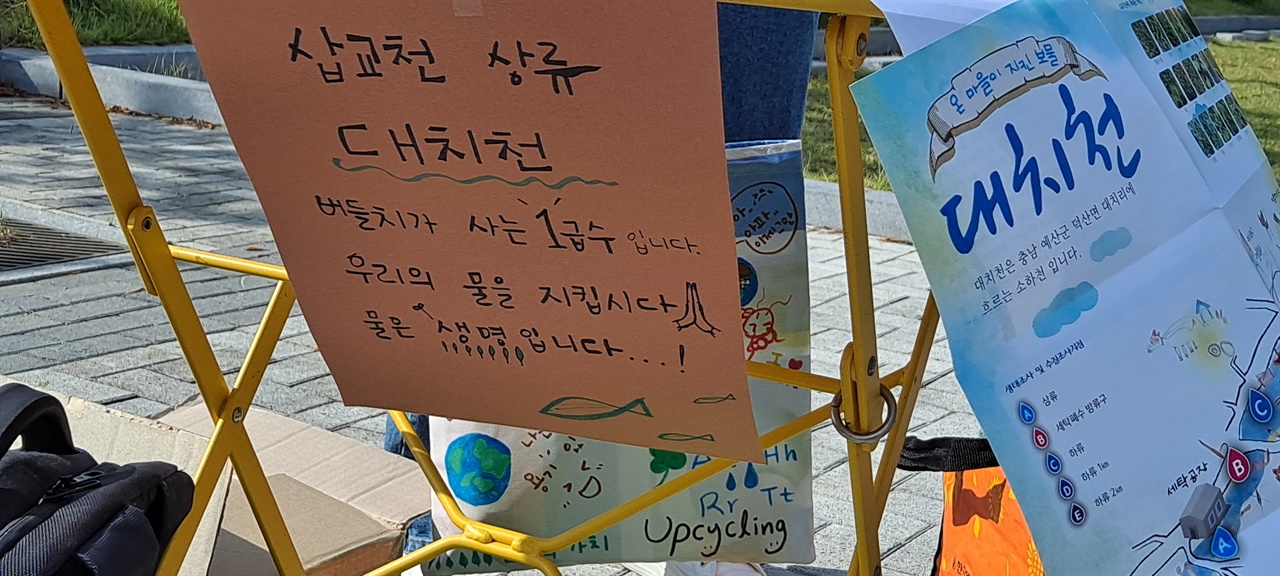 삽교천 상류
대치천
버들치가 사는 1급수 입니다.
우리의 물을 지킵시다
물은 생명입니다...!
온 마을이 지킨 보물
대치천
대치천은 충남 예산군 덕산면 대치리에
흐르는 소하천 입니다.
생태조사 및 수질조사지점
A 상류
B 세탁폐수 방류구
C 하류
D 하류 1km
E 하류 2km
세탁공장
C
B
A
Hh
Rr Tt
Upcycling